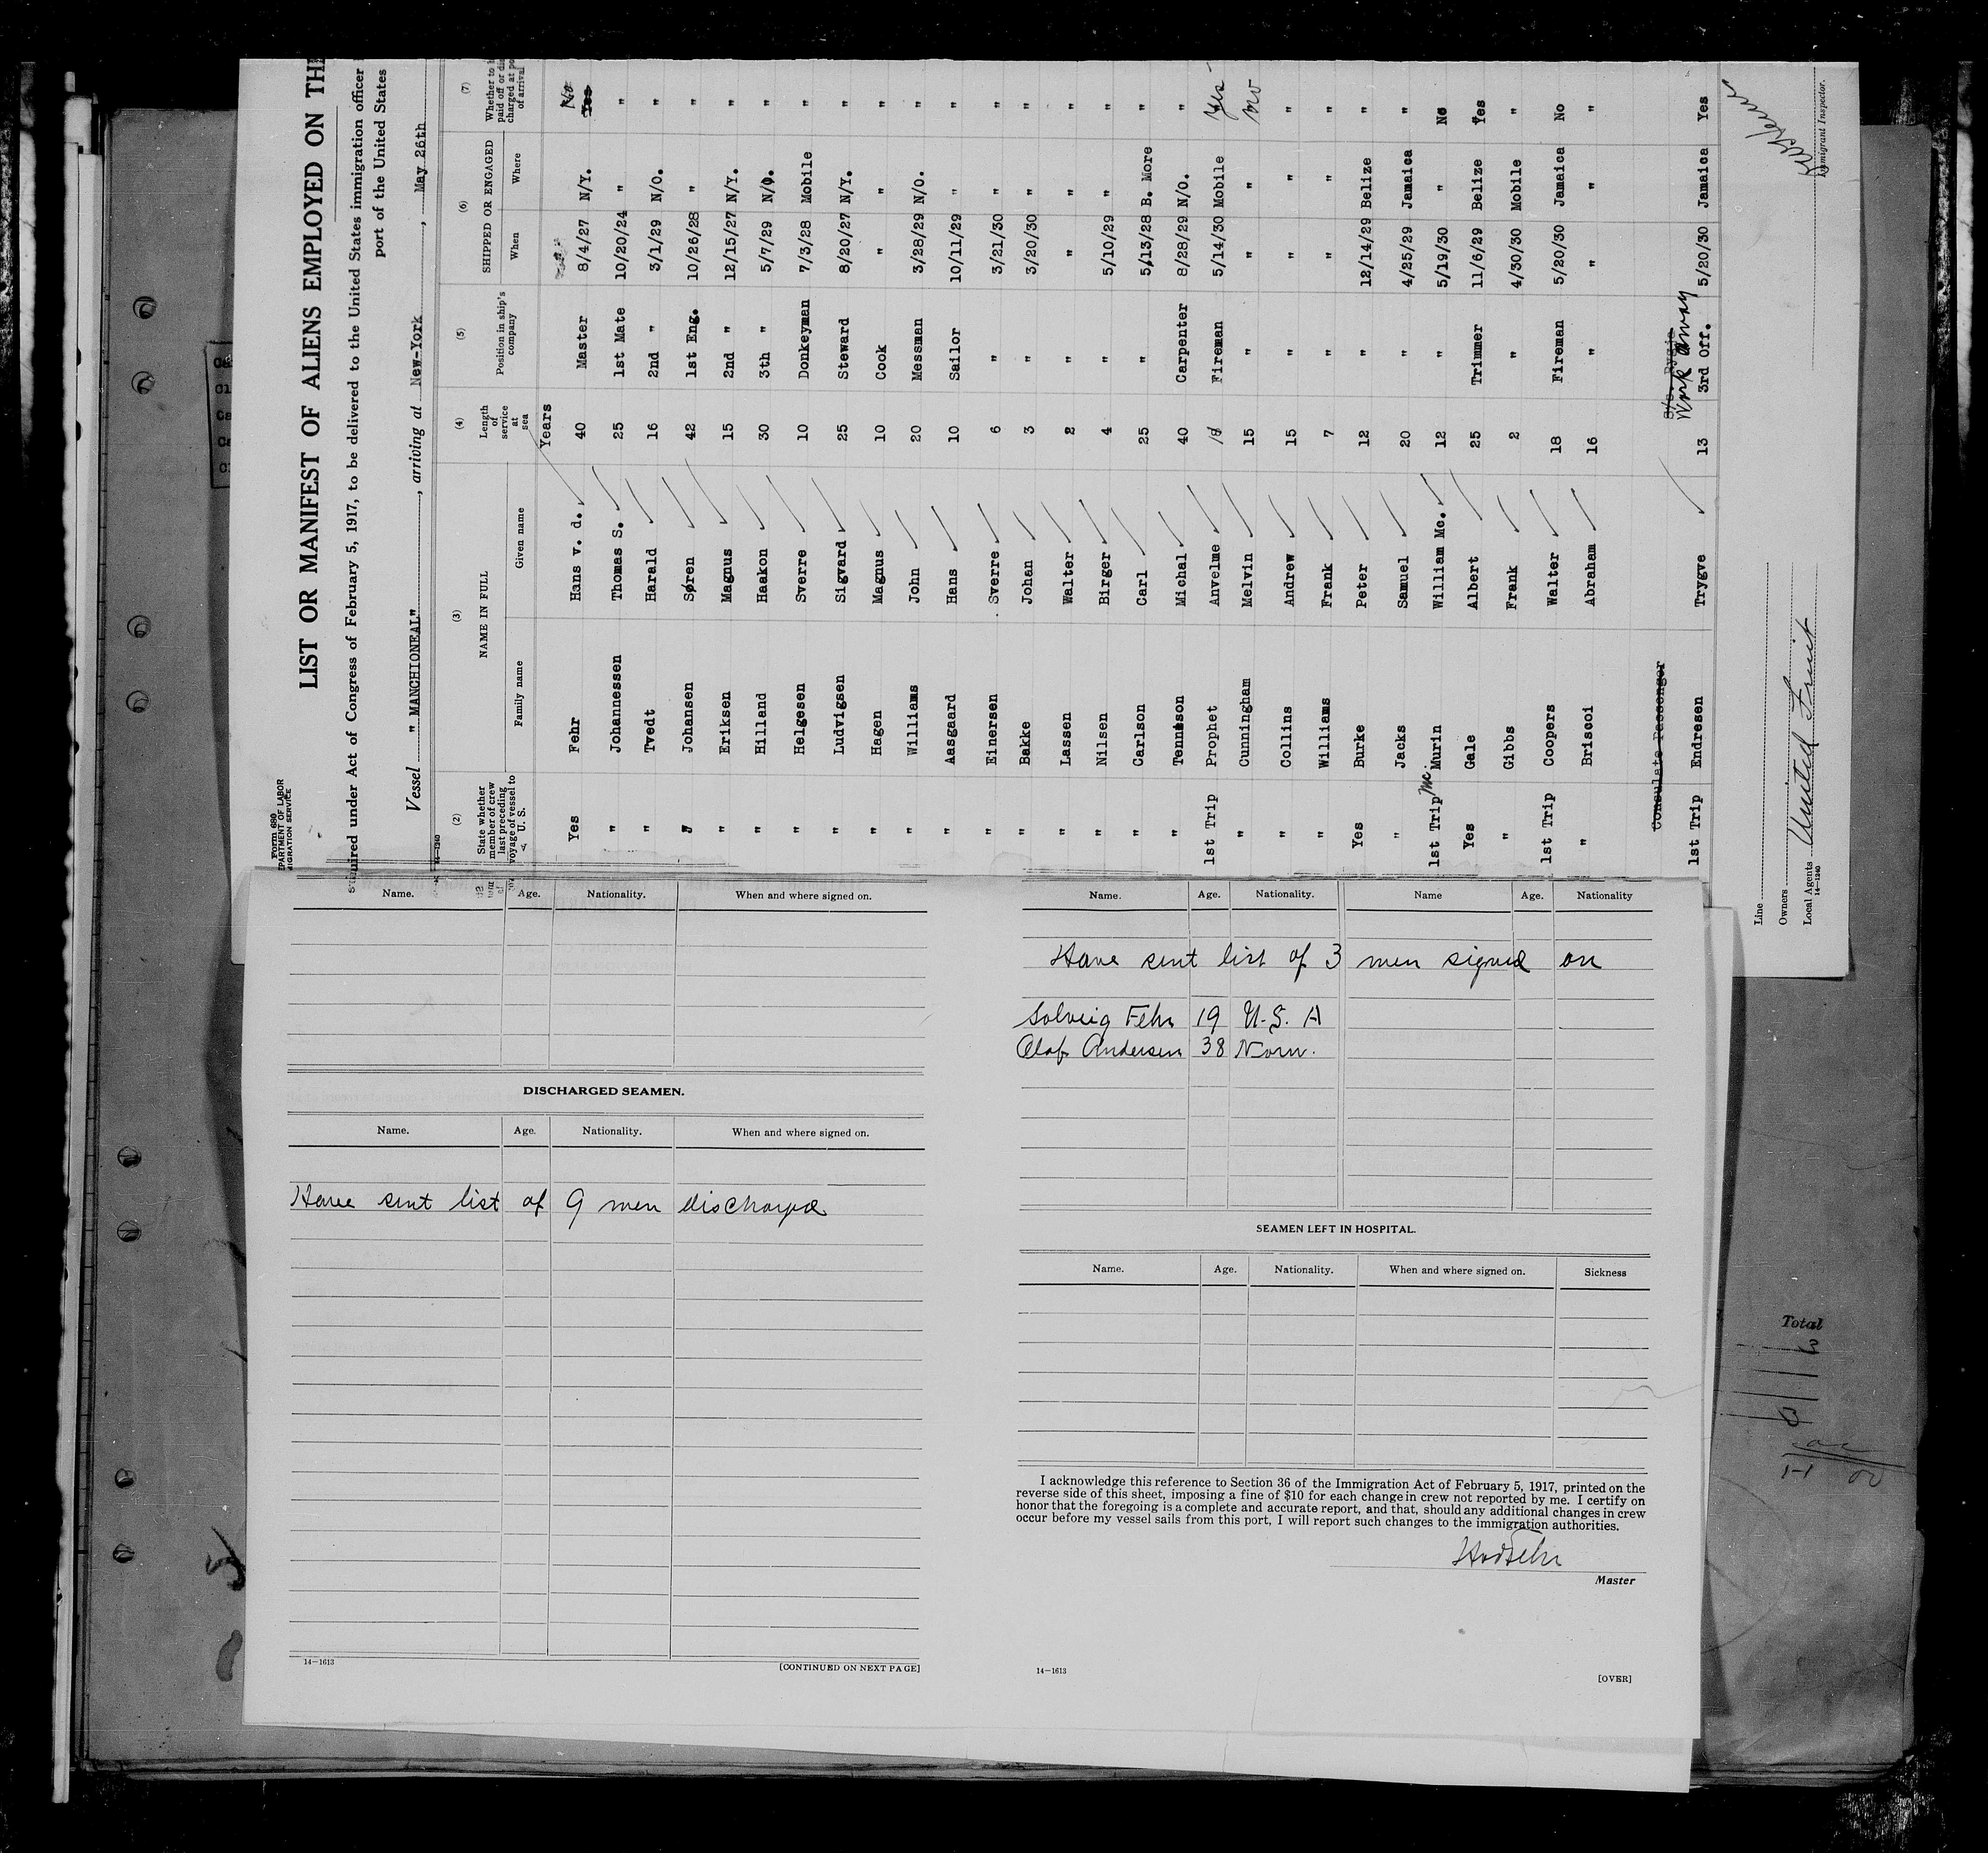 Form 680
LIST OR MANIFEST OF ALIENS EMPLOYED ON THE
required under Act of Congress of February 5, 1917, to be delivered to the United States immigration officer
port of the United States
Vessel " MANCHIONEAL" , arriving at New-York , May 26th
(2) (3) (4) (5) (6) (7)
State whether member of crew last preceding voyage of vessel to U. S. NAME IN FULL Length of service at sea Position in ship's company SHIPPED OR ENGAGED Whether to be paid off or discharged at port of arrival
Family name Given name When Where
Years
Yes Fehr Hans v. d. 40 Master 8/4/27 N/Y. No Yes
" Johannessen Thomas S. 25 1st Mate 10/20/24 " "
" Tvedt Harald 16 2nd " 3/1/29 N/O. "
" Johansen Søren 42 1st Eng. 10/26/28 " "
" Eriksen Magnus 15 2nd " 12/15/27 N/Y. "
" Hilland Haakon 30 3th " 5/7/29 N/O. "
" Helgesen Sverre 10 Donkeyman 7/3/28 Mobile "
" Ludvigsen Sigvard 25 Steward 8/20/27 N/Y. "
" Hagen Magnus 10 Cook " " "
" Williams John 20 Messman 3/28/29 N/O. "
" Aasgaard Hans 10 Sailor 10/11/29 " "
" Einersen Sverre 6 " 3/21/30 " "
" Bakke Johan 3 " 3/20/30 " "
" Lassen Walter 2 " " " "
" Nilsen Birger 4 " 5/10/29 " "
" Carlson Carl 25 " 5,13/28 B. More "
" Tenneson Michal 40 Carpenter 8/28/29 N/O. "
1st Trip Prophet Anvelme 18 Fireman 5/14/30 Mobile Yes -
" Cunningham Melvin 15 " " " No
" Collins Andrew 15 " " " "
" Williams Frank 7 " " " "
Yes Burke Peter 12 " 12/14/29 Belize "
" Jacks Samuel 20 " 4/25/29 Jamaica "
1st Trip Mc. Murin William Mc. 12 " 5/19/30 " No
Yes Gale Albert 25 Trimmer 11/6/29 Belize Yes
" Gibbs Frank 2 " 4/30/30 Mobile "
1st Trip Coopers Walter 18 Fireman 5/20/30 Jamaica No
" Briscoi Abraham 16 " " " "
Consulate Passenger
Work away
1st Trip Endresen Trygve 13 3rd Off. 5/20/30 Jamaica Yes
Line
Owners
Local Agents United Fruit
14-1240
Immigrant Inspector.
Name. Age. Nationality. When and where signed on.
DISCHARGED SEAMEN.
Name. Age. Nationality. When and where signed on.
Have sent list of 9 men discharged
14-1613 [CONTINUED ON NEXT PAGE]
Name. Age. Nationality. Name Age. Nationality
Have sent list of 3 men signed on
Solveig Fehr 19 U.S. A
Olaf Andersen 38 Norw.
SEAMEN LEFT IN HOSPITAL.
Name. Age. Nationality. When and where signed on. Sickness
I acknowledge this reference to Section 36 of the Immigration Act of February 5, 1917, printed on the
reverse side of this sheet, imposing a fine of $10 for each change in crew not reported by me. I certify on
honor that the foregoing is a complete and accurate report, and that, should any additional changes in crew
occur before my vessel sails from this port, I will report such changes to the immigration authorities.
HvdFehr
Master
14-1613 [OVER]
Total